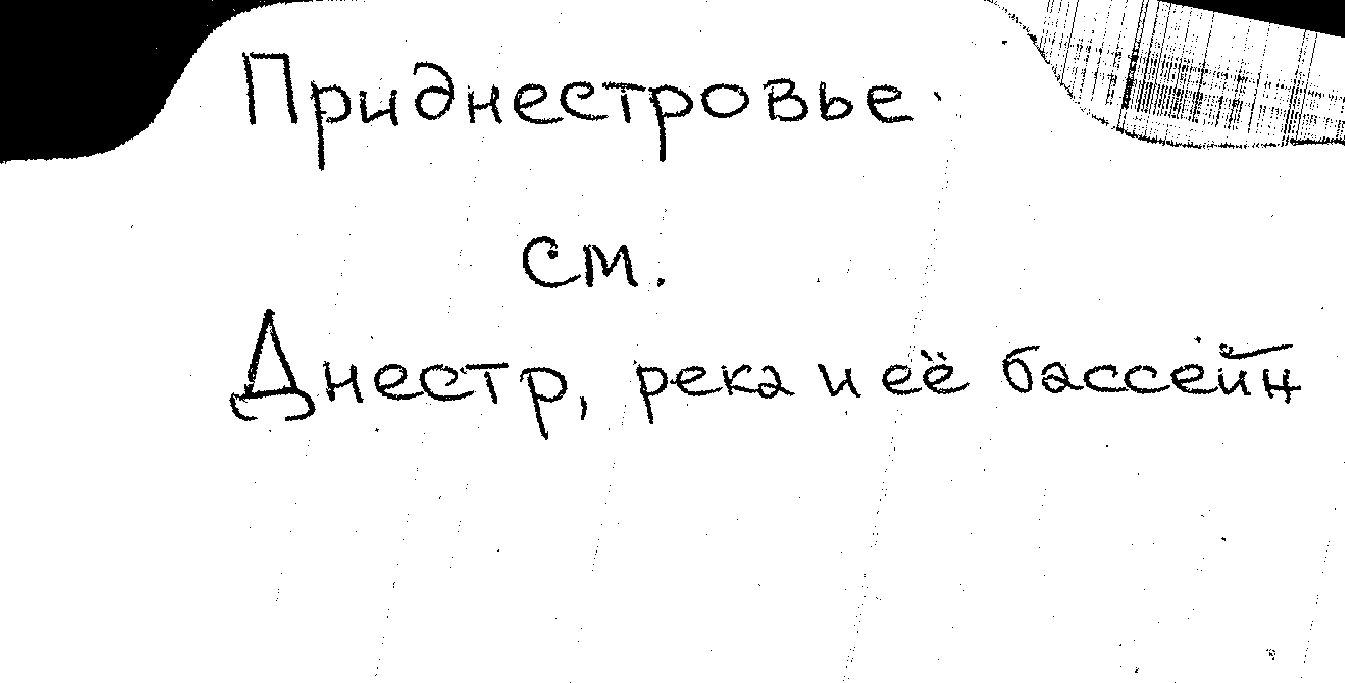 Приднестровье.
см.
Днестр, река и её бассейн